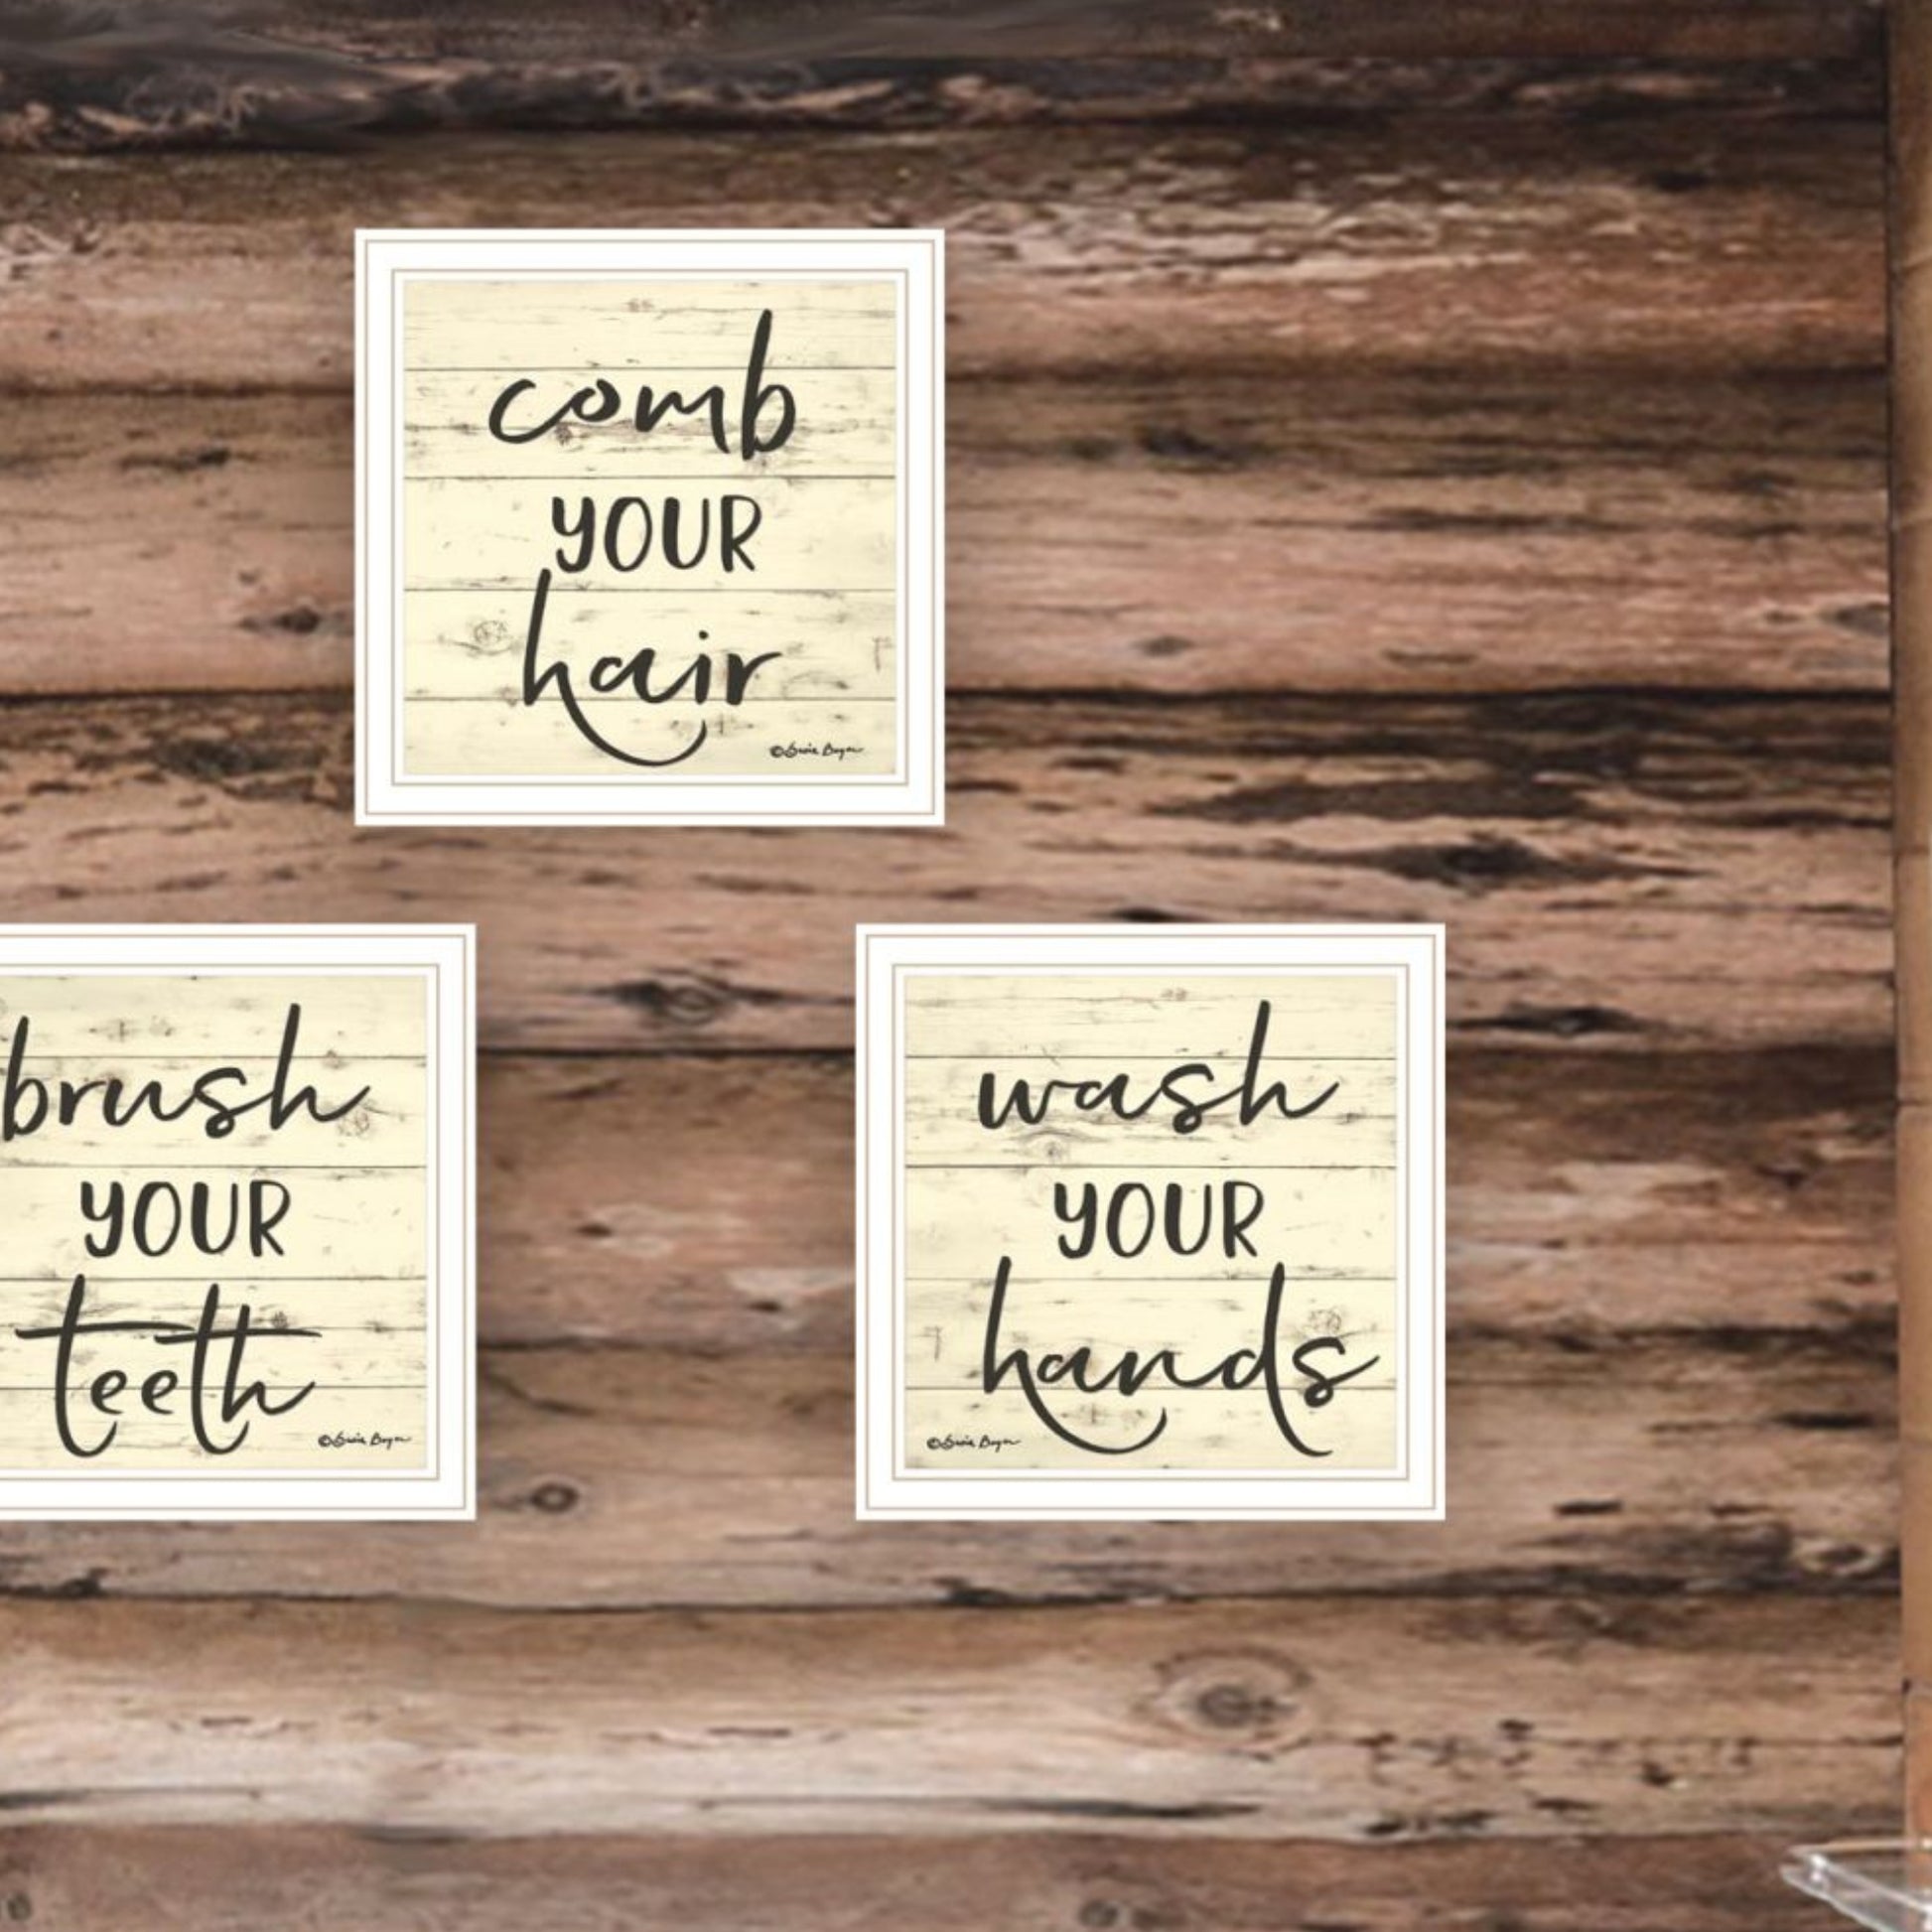 comb
YOUR
hair
©Susie Boyer
brush
YOUR
teeth
©Susie Boyer
wash
YOUR
hands
©Susie Boyer